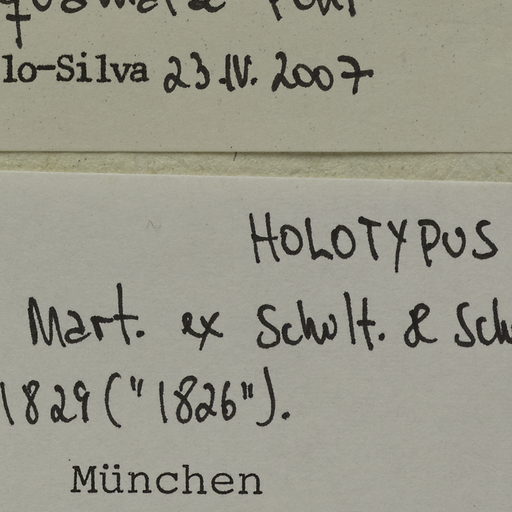 lo-Silva 23.IV.2007
HOLOTYPUS
Mart. ex Schult. & Sch
1829 ("1826").
München